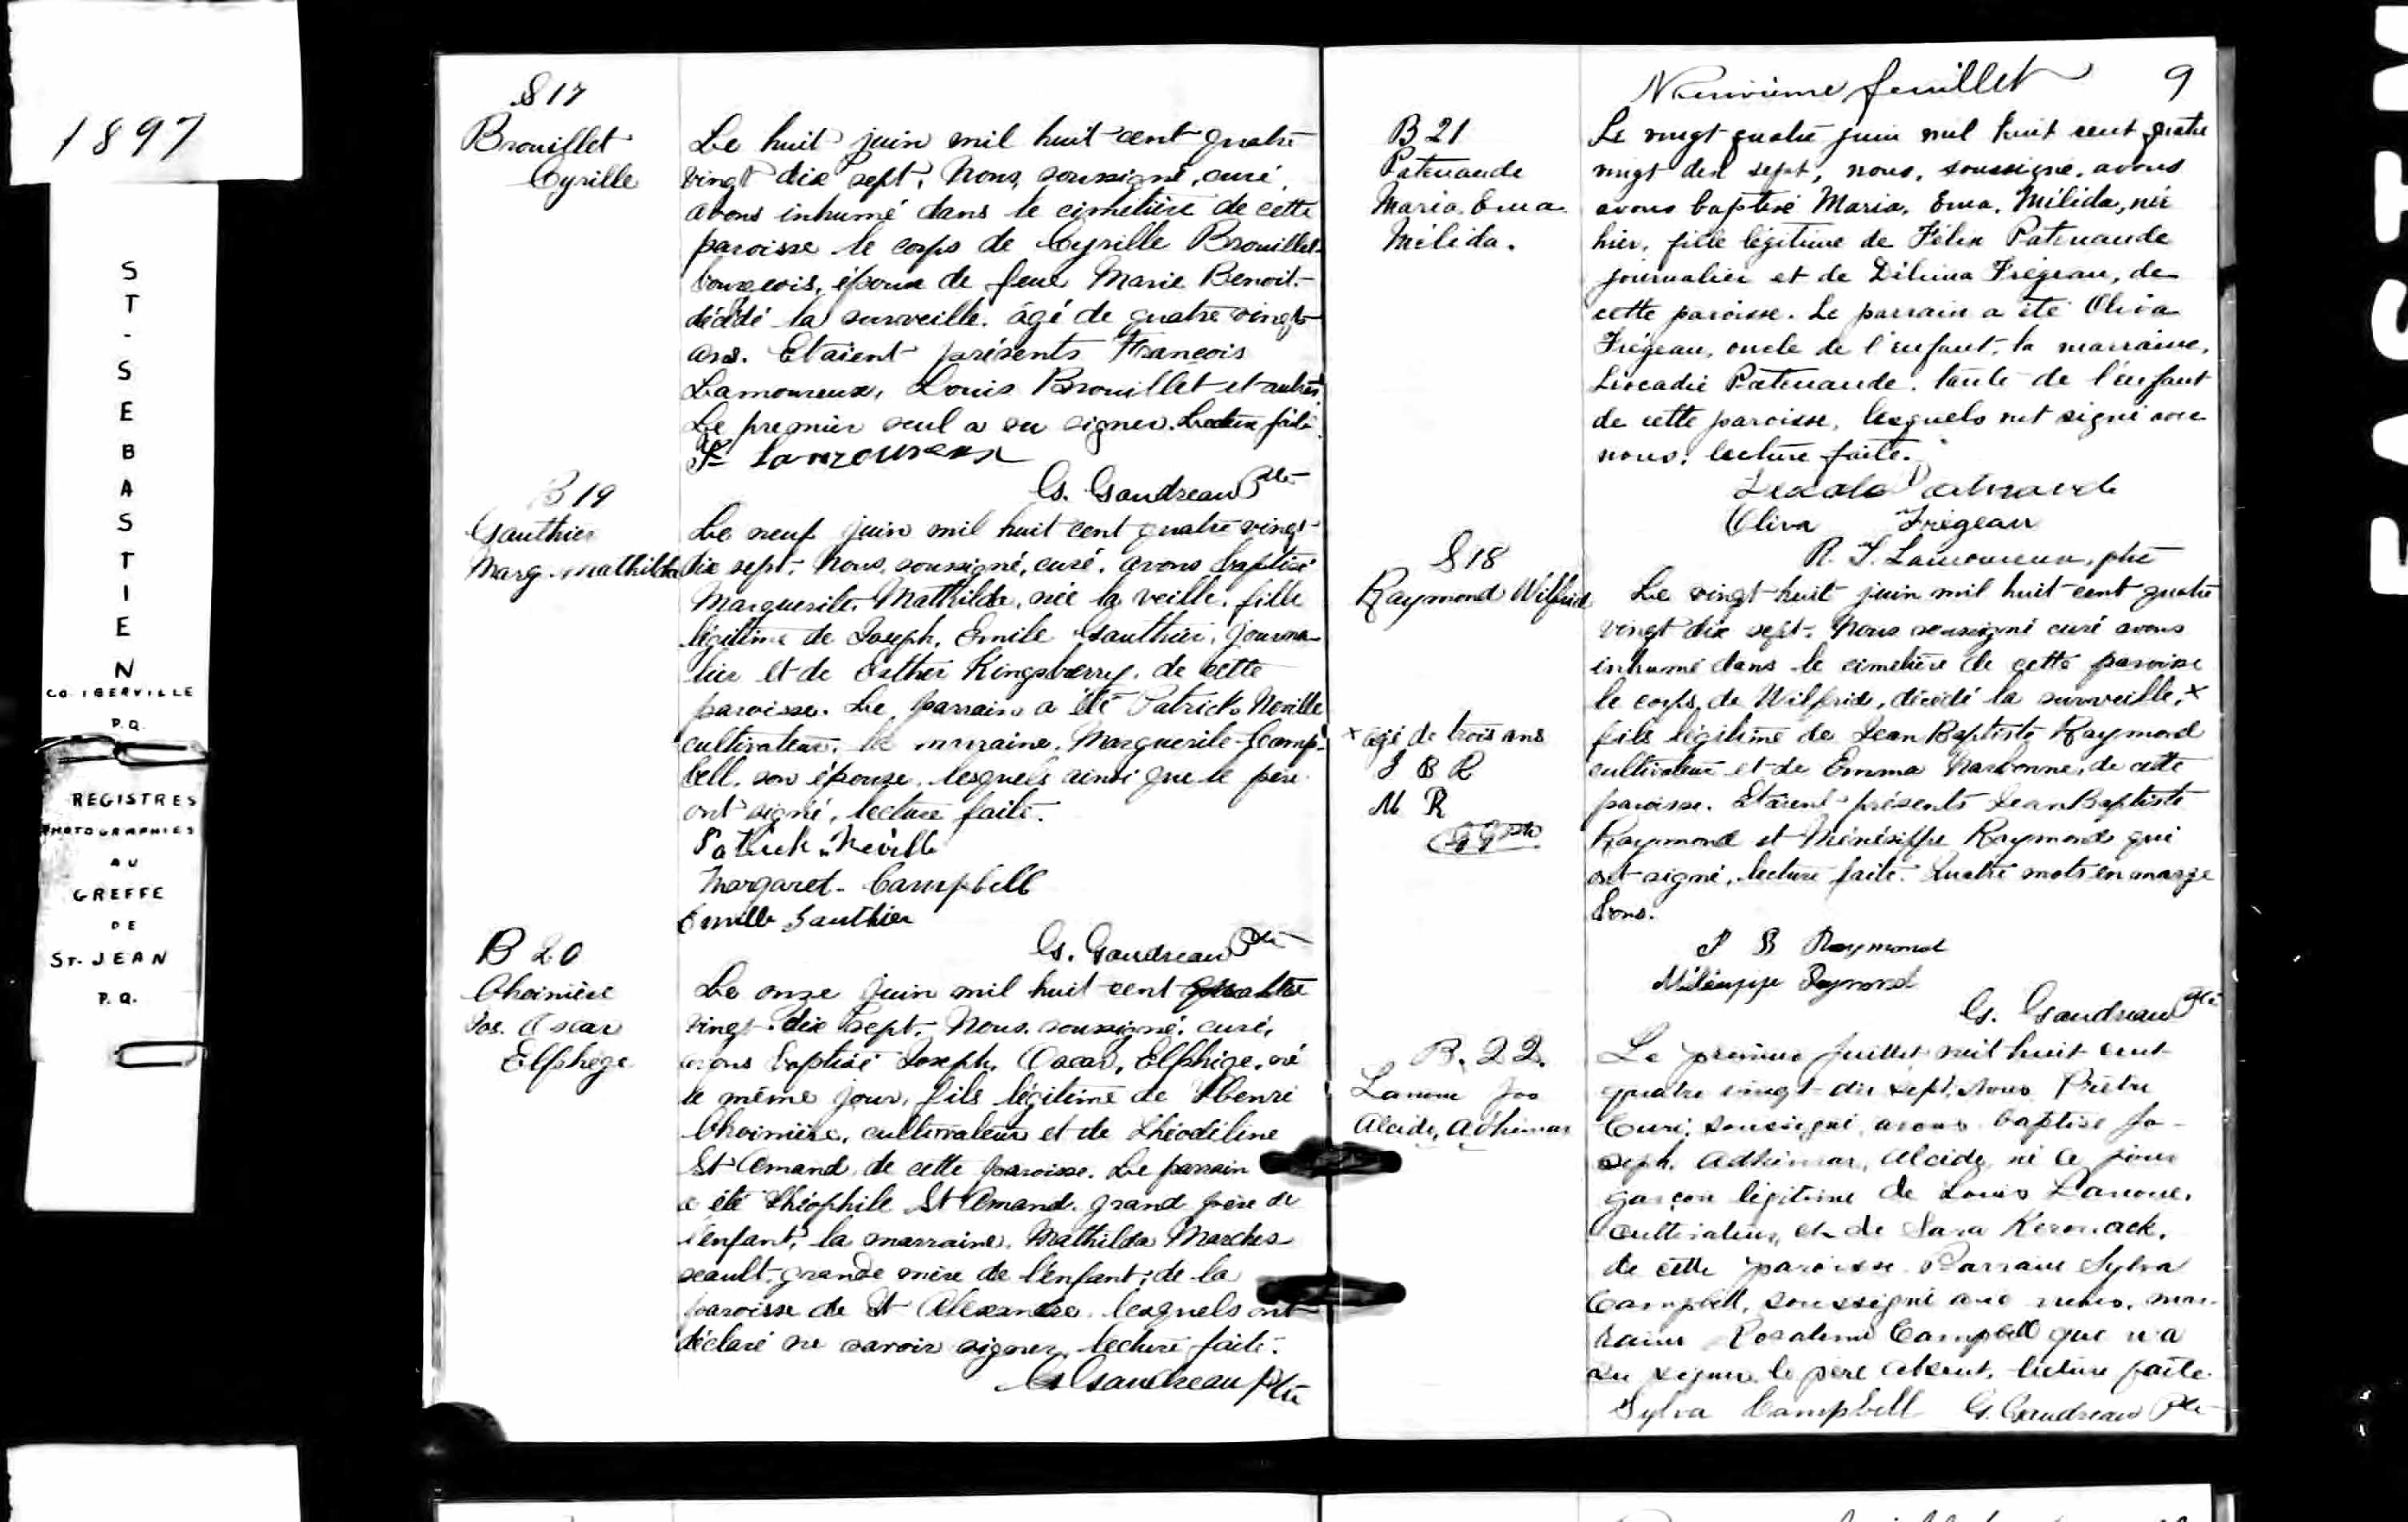 1897
ST-SEBASTIEN
CO. IBERVILLE
P.Q.
REGISTRES
PHOTOGRAPHIES
AU
GREFFE
DE
ST. JEAN
P.Q.
S 17
Brouillet
Cyrille
Le huit juin mil huit cent quatre
vingt dix sept, Nous, soussigné, curé,
avons inhumé dans le cimetière de cette
paroisse le corps de Cyrille Brouillet
bourgeois, époux de feue Marie Benoit.
décédé la surveille. âgé de quatre vingts
ans. Etaient présents François
Lamoureux, Louis Brouillet et autres.
Le premier seul a su signer. Lecture faite.
Fs Lamoureux
Gs. Gaudreau Ptre
B 19
Gauthier
Marg. Mathilda
Le neuf juin mil huit cent quatre vingt
dix sept, Nous, soussigné, curé, avons baptisé
Marguerite, Mathilda, née la veille, fille
légitime de Joseph, Emile Gauthier, journa-
lier et de Esther Kingsberry, de cette
paroisse. Le parrain a été Patrick Neville
cultivateur, la marraine, Marguerite Camp-
bell, son épouse, lesquels ainsi que le père
ont signé, lecture faite.
Patrick Neville
Margaret Campbell
Emille Gauthier
Gs. Gaudreau Ptre
B 20
Choinière
Jos. Oscar
Elphège
Le onze juin mil huit cent quatre
vingt dix sept, Nous, soussigné, curé,
avons baptisé Joseph, Oscar, Elphège, né
le même jour, fils légitime de Henri
Choinière, cultivateur et de Théodeline
St Amand, de cette paroisse. Le parrain
a été Théophile St Amand, grand père de
l'enfant, la marraine, Mathilda Marches
seault, grande mère de l'enfant; de la
paroisse de St Alexandre, lesquels ont
déclaré ne savoir signer, lecture faite.
Gs Gaudreau Ptre
Neuvième feuillet 9
B 21
Patenaude
Maria. Ema
Mélida.
Le vingt quatre juin mil huit cent quatre
vingt dix sept, nous, soussigné, avons
avons baptisé Maria, Ema, Mélida, née
hier, fille légitime de Félix Patenaude
journalier et de Délima Frégeau, de
cette paroisse. Le parrain a été Oliva
Frégeau, oncle de l'enfant, la marraine,
Léocadie Patenaude, tante de l'enfant
de cette paroisse, lesquels ont signé avec
nous, lecture faite.
Patenaude
Oliva Frégeau
R. S. Lamoureux, ptre
S 18
Raymond Wilfrid
Le vingt-huit juin mil huit cent quatre
vingt dix sept, Nous soussigné curé avons
inhumé dans le cimetière de cette paroisse
le corps de Wilfrid, décédé la surveille, x
x âgé de trois ans
J B R
M R
G G ptre
fils légitime de Jean Baptiste Raymond
cultivateur et de Emma Narbonne, de cette
paroisse. Etaient présents Jean Baptiste
Raymond et Ménésippe Raymond qui
ont signé, lecture faite. Quatre mots en marge
bons.
J B Raymond
Raymond
Gs. Gaudreau Ptre
B. 22.
Lanoue Jos
Alcide, Adhémar
Le premier juillet mil huit cent
quatre vingt-dix sept, Nous Prêtre
Curé, soussigné, avons baptisé Jo-
seph, Adhémar, Alcide né ce jour
garçon légitime de Louis Lanoue,
cultivateur, et de Sara Kerouack,
de cette paroisse. Parrain Sylva
Campbell, soussigné avec nous, mar-
raine Rosalima Campbell qui n'a
su signer, le père absent, lecture faite.
Sylva Campbell G. Gaudreau Ptre